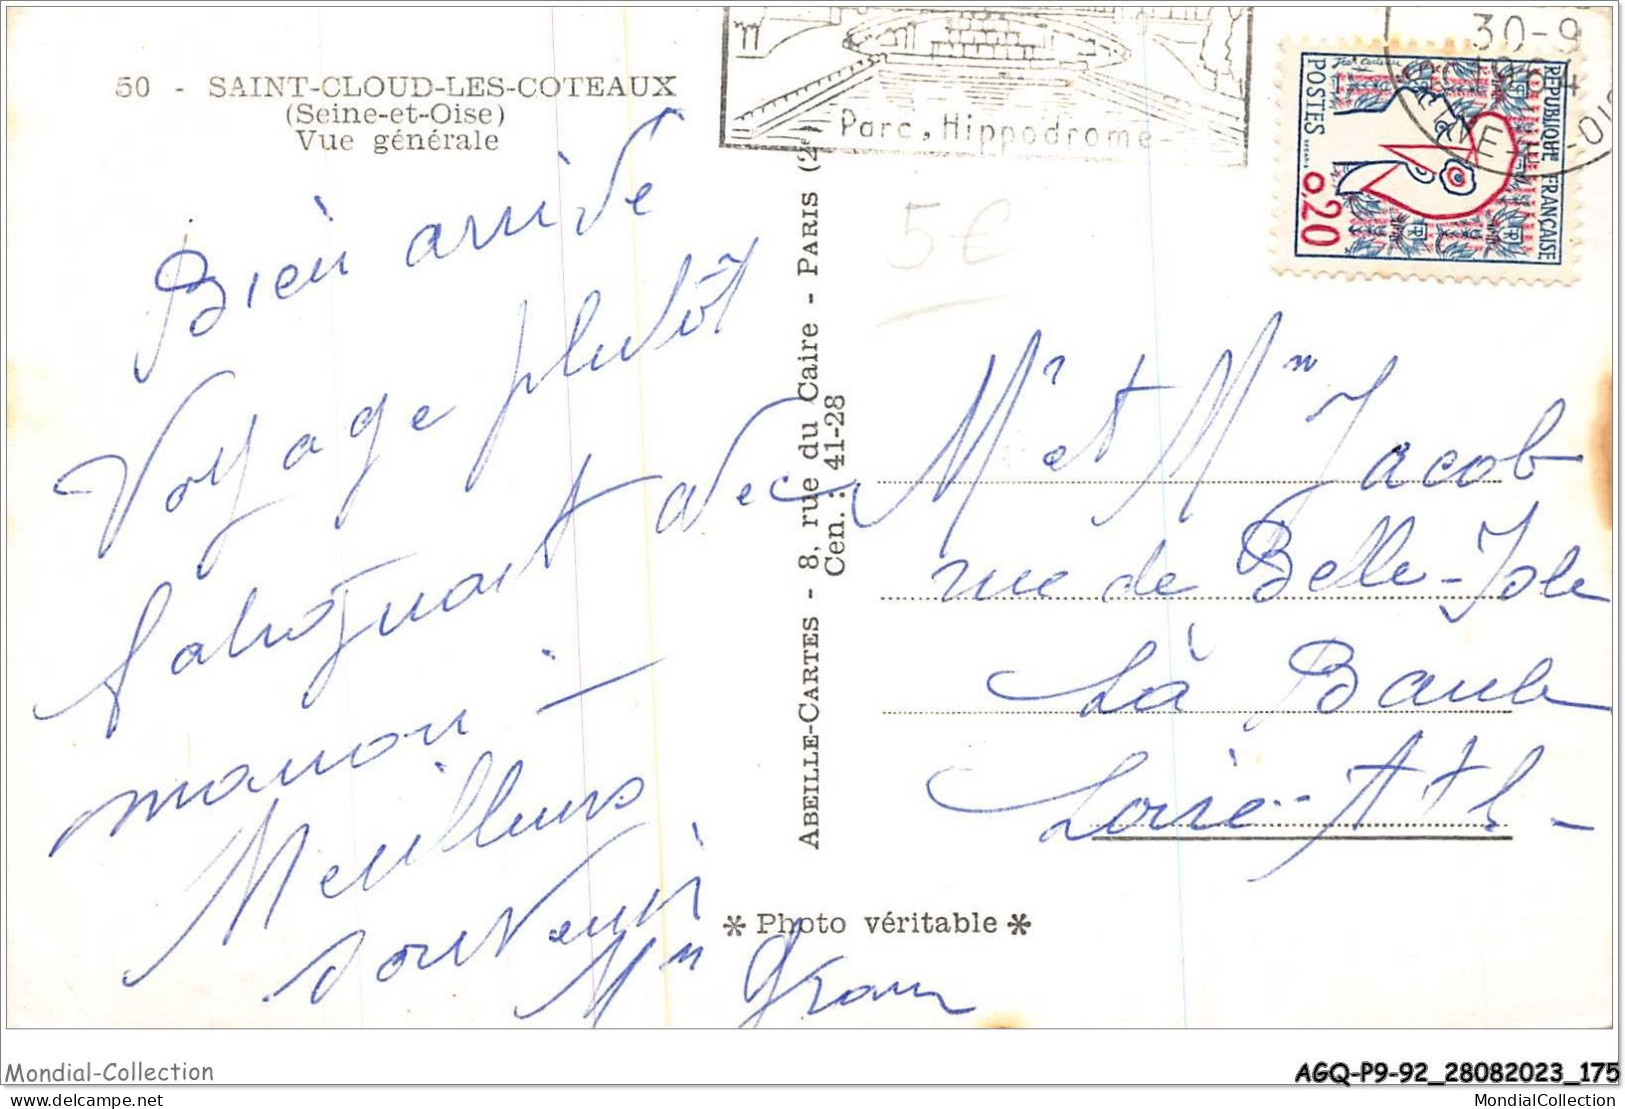 50 - SAINT-CLOUD-LES-COTEAUX
(Seine-et-Oise)
Vue générale
Bien arrivé
Voyage plutôt
fatiguant avec
manon -
Meilleurs
souvenir
Mm
Parc, Hippodrome
30-9
POSTES
REPUBLIQUE FRANÇAISE
0,20
5€
ABEILLE-CARTES - 8, rue du Caire - PARIS (2e
Cen. : 41-28
Mr et Mm Jacob
rue de Belle-Isle
La Baule
Loire-Atl -
* Photo véritable *
Mondial-Collection
AGQ-P9-92_28082023_175
delcampe.net
MondialCollection